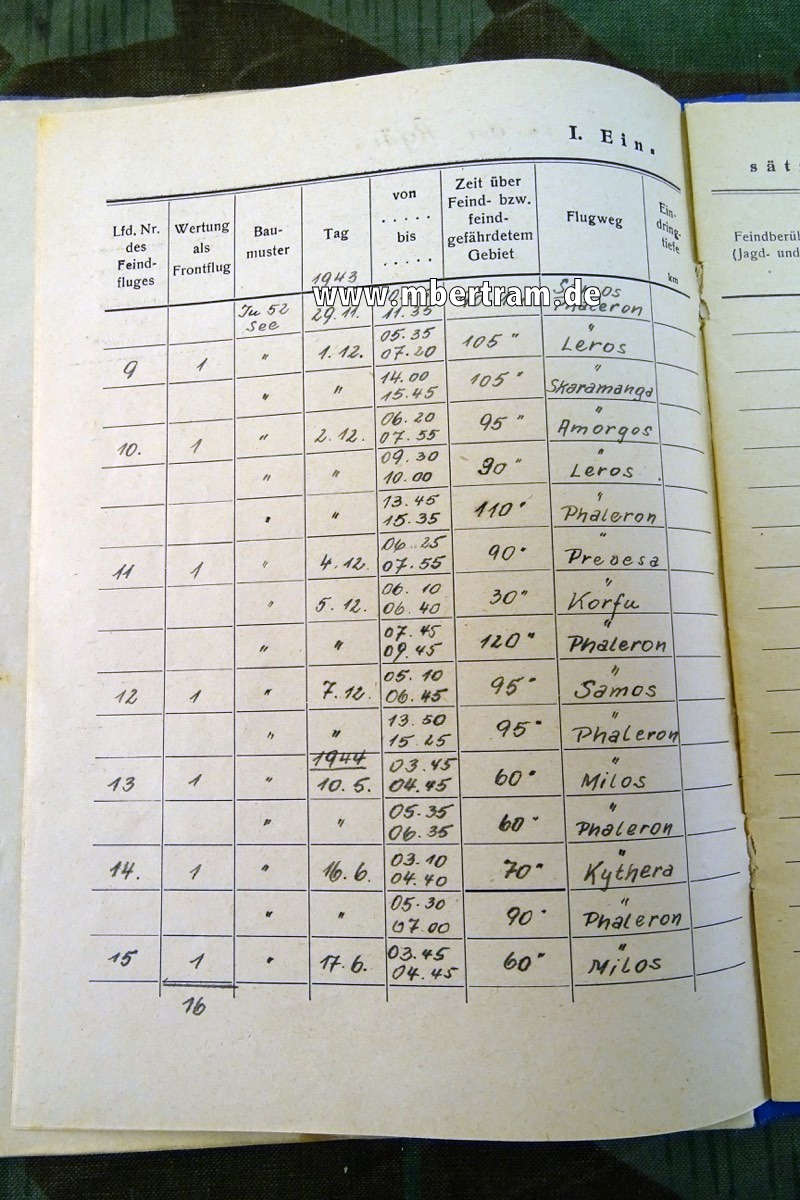 I. Ein.
Lfd. Nr. des Feindfluges Wertung als Frontflug Bau-muster Tag von ..... bis ..... Zeit über Feind- bzw. feind-gefährdetem Gebiet Flugweg Ein-dring-tiefe km
sät
Feindberüh
(Jagd- und
1943
www.mbertram.de
Ju 52 See 29.11. 11.35 Phaleron
9 1 " 1.12. 05.35 07.20 105 " " Leros
" " 14.00 15.45 105 " " Skaramanga
10. 1 " 2.12. 06.20 07.55 95 " " Amorgos
" " 09.30 10.00 30 " " Leros
" " 13.45 15.35 110 " " Phaleron
11 1 " 4.12. 06.25 07.55 90 " " Prevesa
" 5.12. 06.10 06.40 30 " " Korfu
" " 07.45 09.45 120 " " Phaleron
12 1 " 7.12. 05.10 06.45 95 " " Samos
" " 13.50 15.25 95 " " Phaleron
1944
13 1 " 10.5. 03.45 04.45 60 " " Milos
" " 05.35 06.35 60 " " Phaleron
14. 1 " 16.6. 03.10 04.40 70 " " Kythera
" " 05.30 07.00 90 " " Phaleron
15 1 " 17.6. 03.45 04.45 60 " " Milos
16